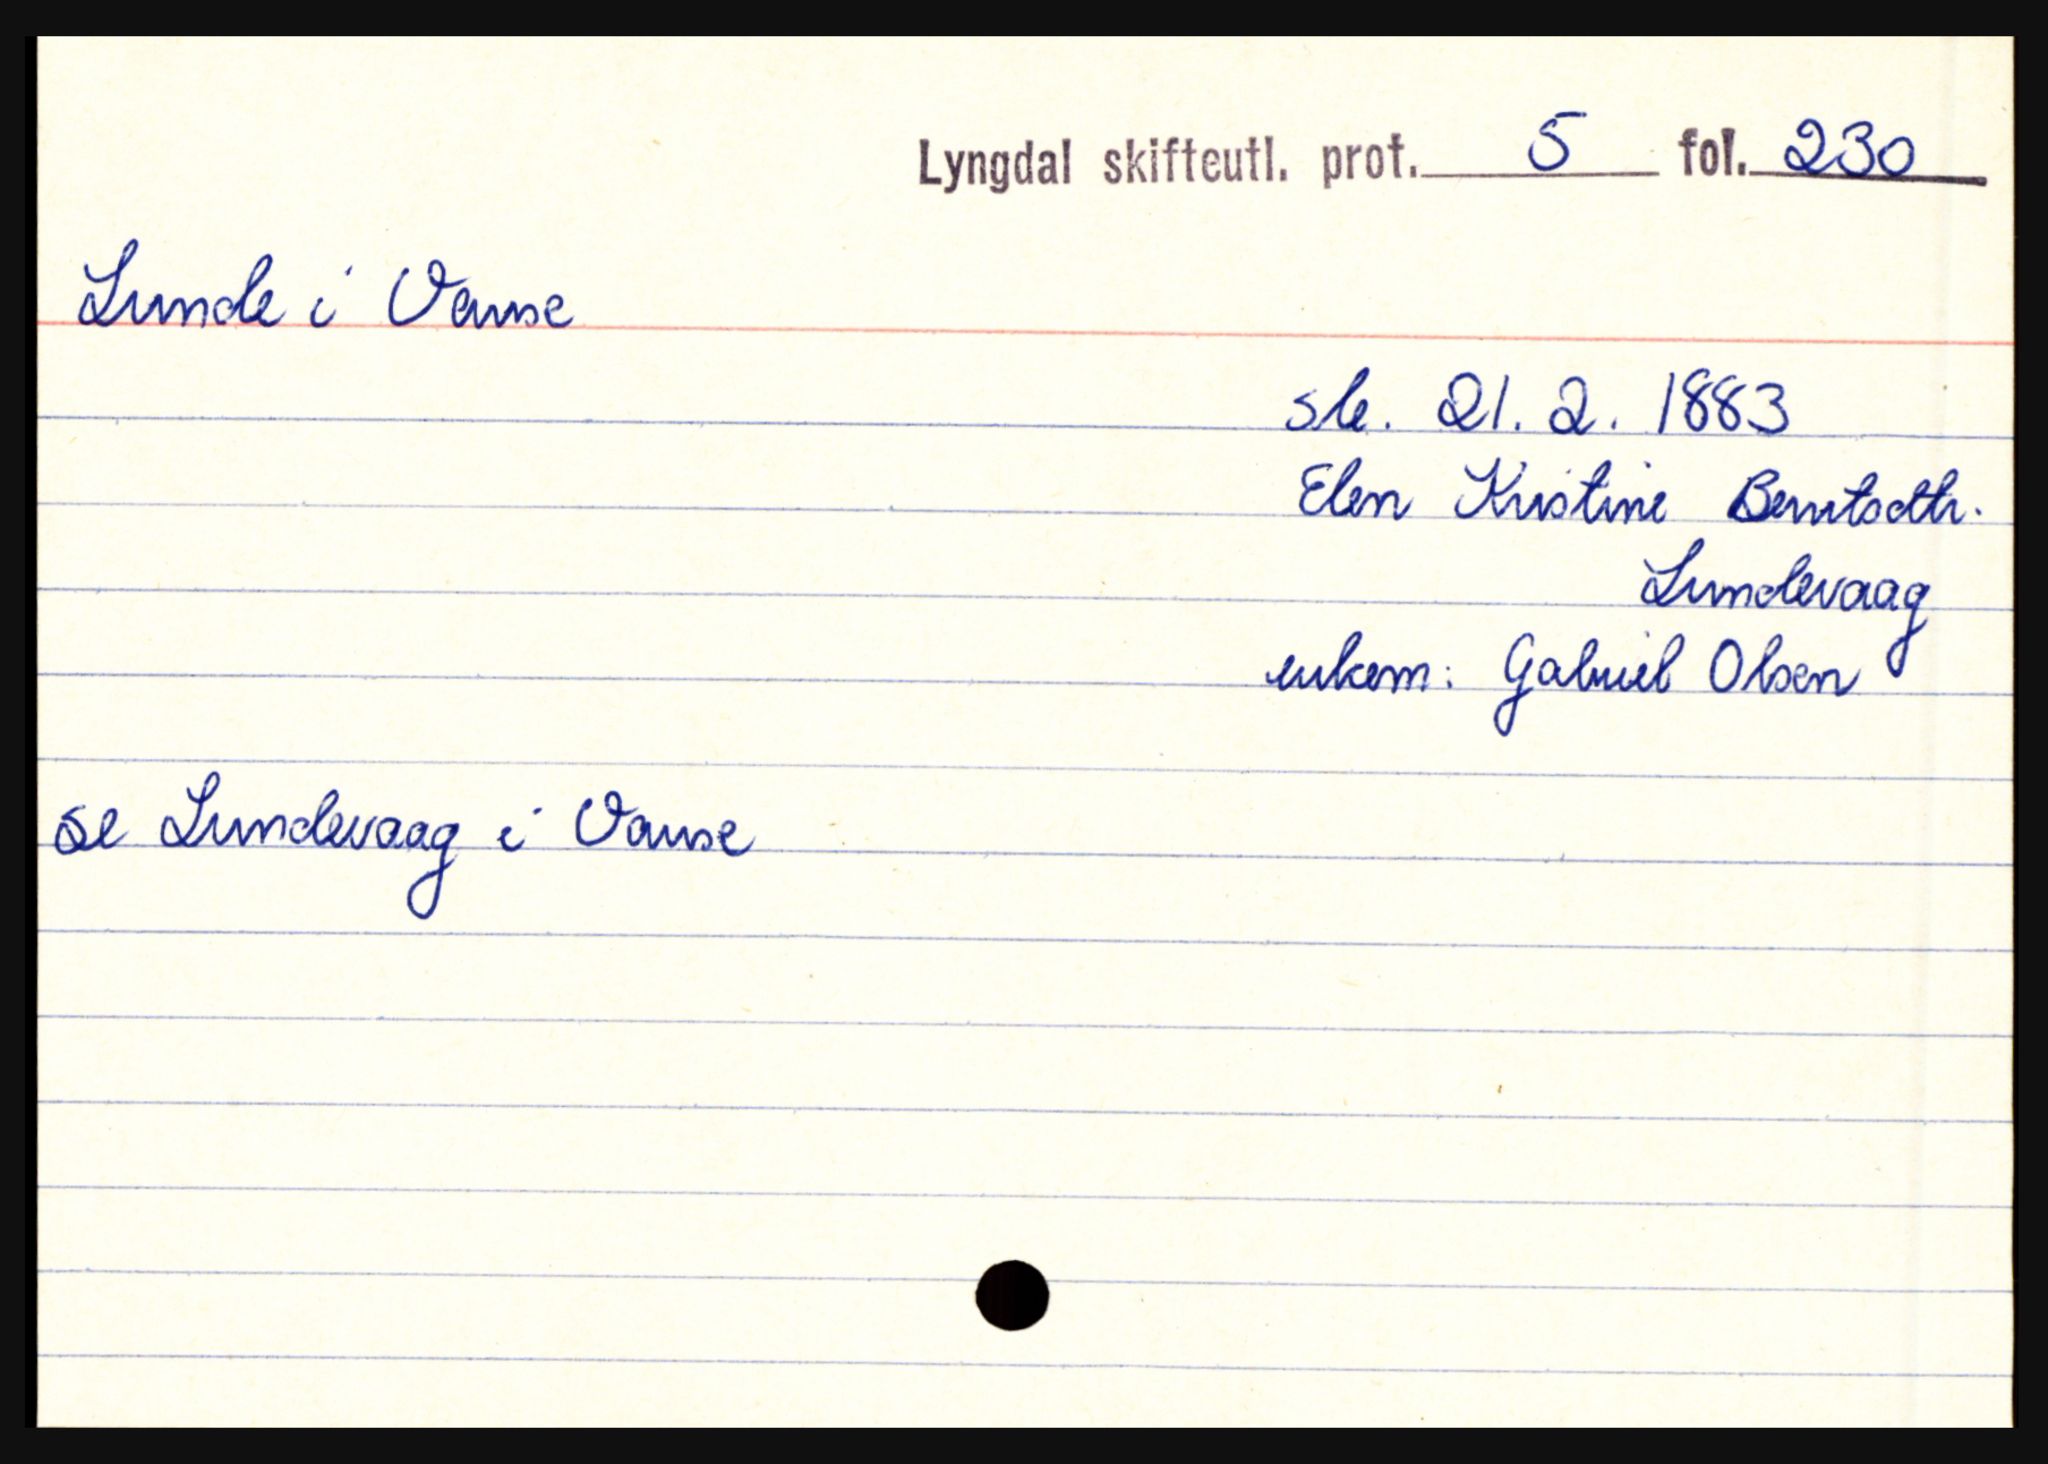 Lyngdal skifteutl. prot. 5 fol. 230
Lunde i Vanse
sle. 21. 2. 1883
Elen Kristine Berntsdtr.
Lundevaag
enkem: Gabriel Olsen
se Lundevaag i Vanse